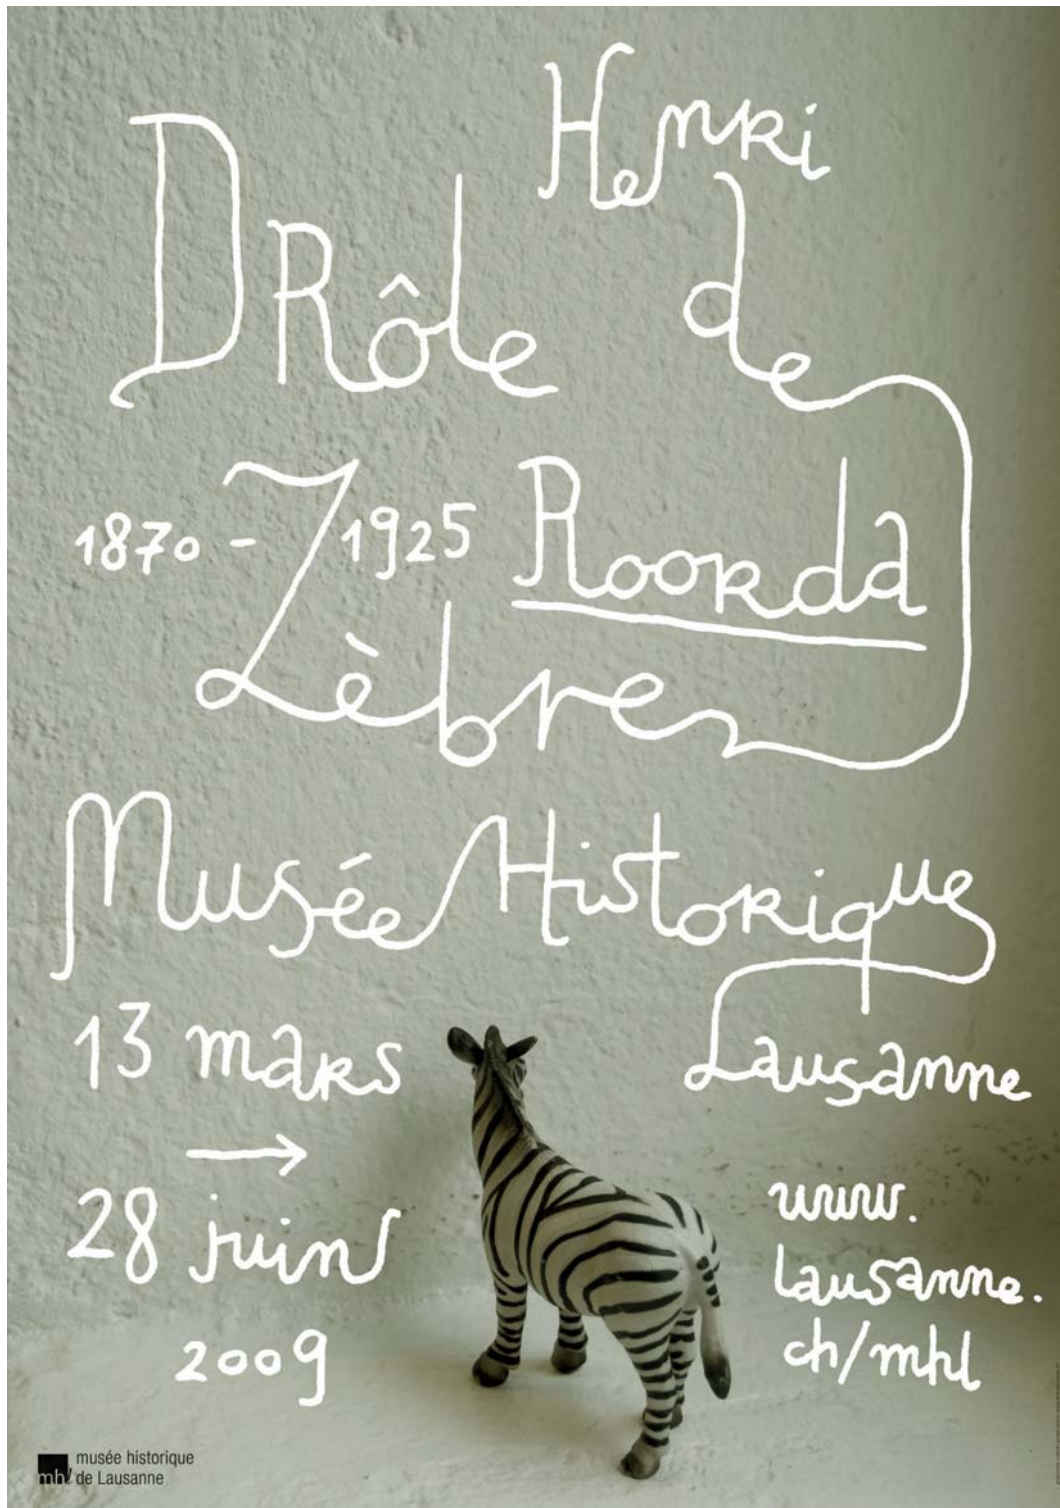 Henri
Drôle de
1870 - 1925 Roorda
Zèbre
Musée Historique
Lausanne
13 mars
→
28 juin
2009
www.
lausanne.
ch/mhl
mhl musée historique
de Lausanne